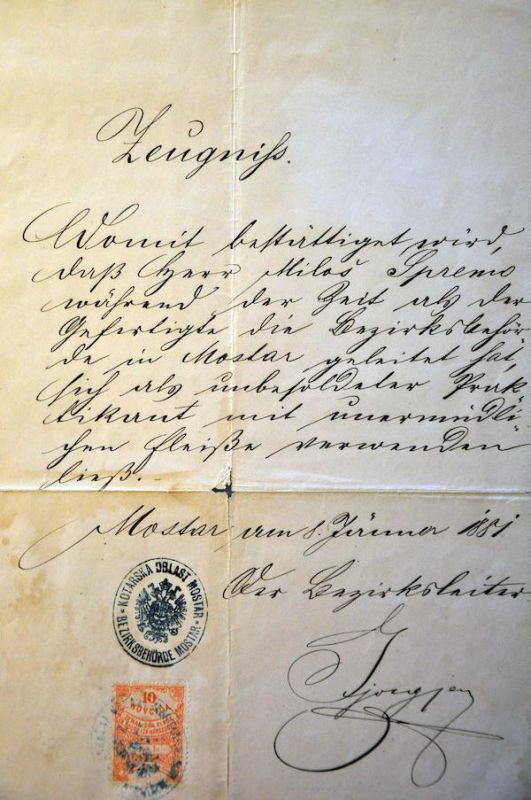 Zeugniss.
Womit bestättiget wird,
daß Herr Miloš Spremo
während der Zeit als der
Gefertigte die Bezirksbehör-
de in Mostar geleitet hat,
sich als unbesoldeter Prak-
tikant mit unermüdli-
chen Fleiße verwenden
ließ.-
Mostar, am 8. Jänner 1881
Der Bezirksleiter
KOTARSKA OBLAST MOSTAR
BEZIRKSBEHÖRDE MOSTAR
10
NOVČ